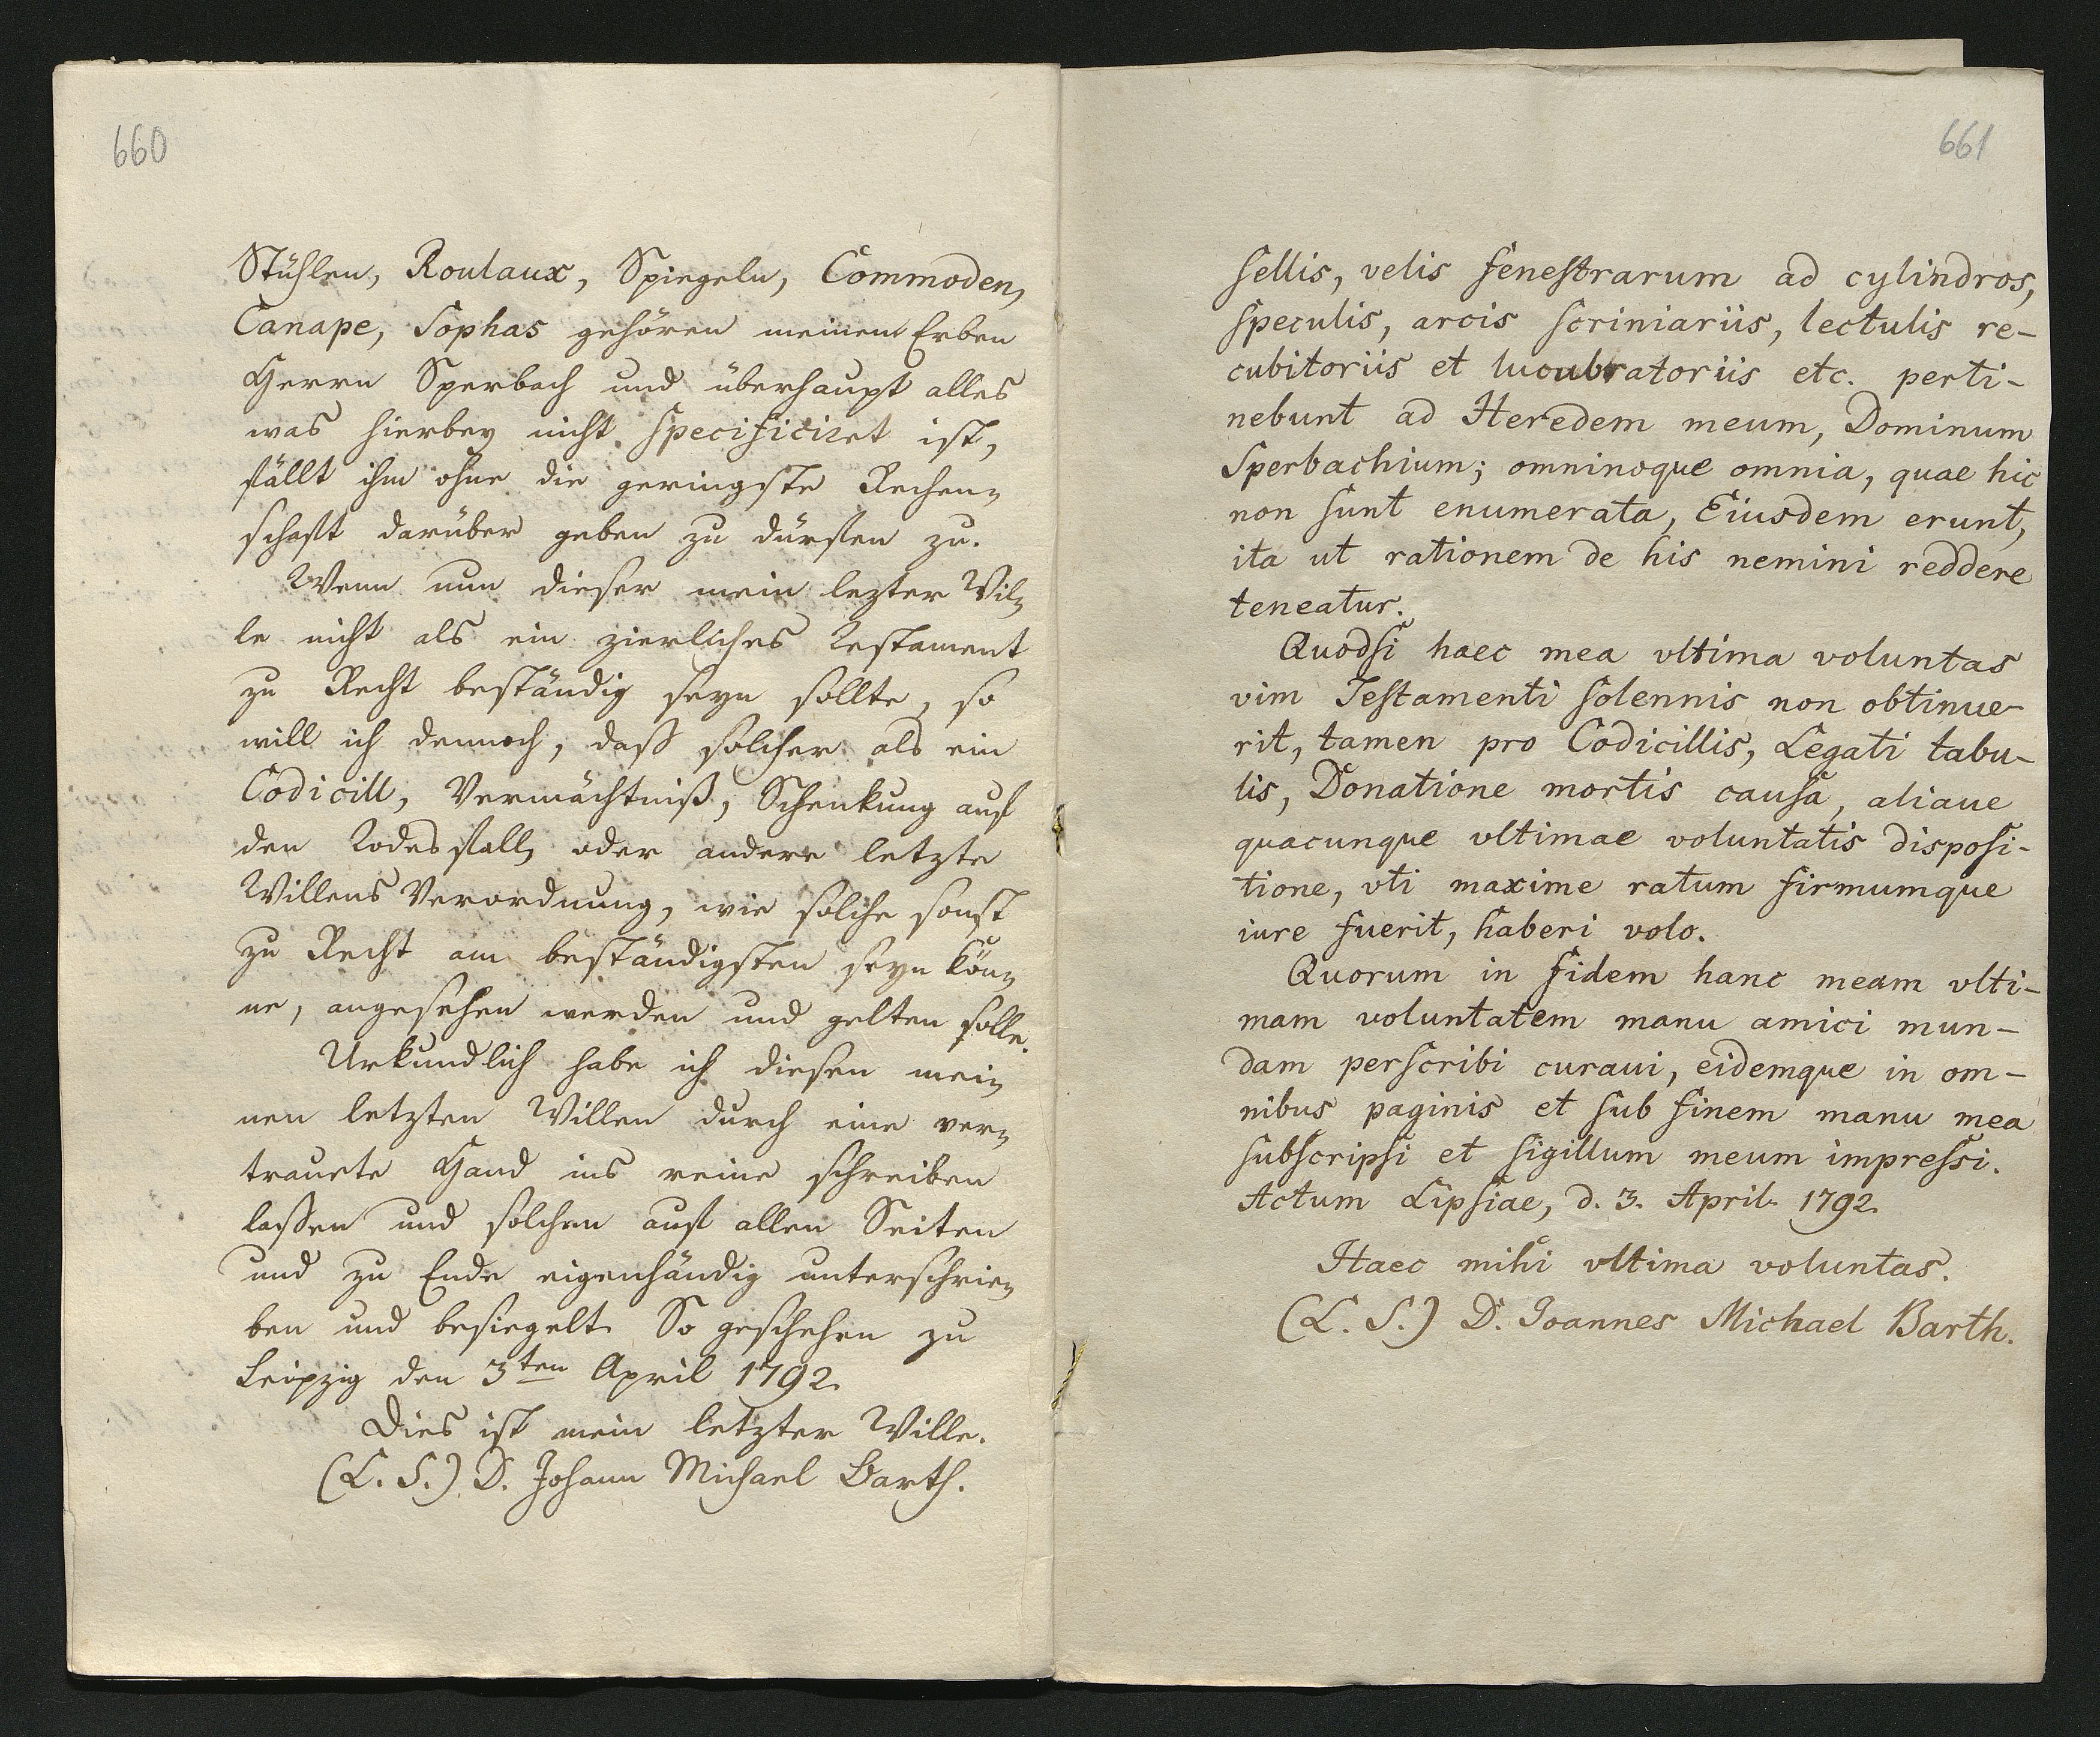 660
Stühlen, Roulaux, Spiegeln, Commoden,
Canape, Sophas gehören meinem Erben
Herrn Sperbach und überhaupt alles
was hierbey nicht specificiret ist,
fällt ihm ohne die geringste Rechen-
schaft darüber geben zu dürfen zu.
Wenn nun dieser mein lezter Wil-
le nicht als ein zierliches Testament
zu Recht beständig seyn sollte, so
will ich dennoch, daß solcher als ein
Codicill, Vermächtniß, Schenkung auf
den Todesfall, oder andere letzte
Willens Verordnung, wie solche sonst
zu Recht am beständigsten seyn kön-
ne, angesehen werden und gelten solle.
Urkundlich habe ich diesen mei-
nen letzten Willen durch eine ver-
trauete Hand ins reine schreiben
laßen und solchen auf allen Seiten
und zu Ende eigenhändig unterschrie-
ben und besiegelt. So geschehen zu
Leipzig den 3ten April 1792.
Dies ist mein letzter Wille.
(L. S.) D. Johann Michael Barth.
661
sellis, velis fenestrarum ad cylindros,
speculis, arcis scriniariis, lectulis re-
cubitoriis et lucubratoriis etc. perti-
nebunt ad Heredem meum, Dominum
Sperbachium; omninoque omnia, quae hic
non sunt enumerata, Eiusdem erunt,
ita ut rationem de his nemini reddere
teneatur.
Quodsi haec mea vltima voluntas
vim Testamenti solennis non obtinue-
rit, tamen pro Codicillis, Legati tabu-
lis, Donatione mortis causa, aliaue
quacunque vltimae voluntatis disposi-
tione, vti maxime ratum firmumque
iure fuerit, haberi volo.
Quorum in fidem hanc meam vlti-
mam voluntatem manu amici mun-
dam perscribi curaui, eidemque in om-
nibus paginis et sub finem manu mea
subscripsi et sigillum meum impressi.
Actum Lipsiae, d. 3. April. 1792.
Haec mihi vltima voluntas.
(L. S.) D. Joannes Michael Barth.